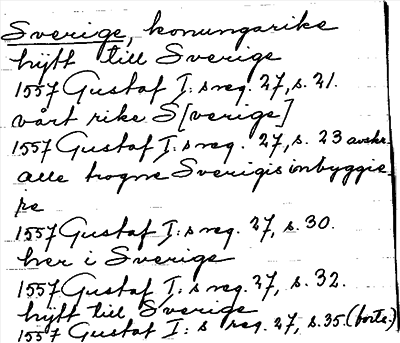 Sverige, konungarike
hijtt till Sverige
1557 Gustaf I:s reg. 27, s. 21.
vårt rike S[verige]
1557 Gustaf I:s reg. 27, s. 23 avskr.
alle trogne Sverigis inbyggie-
re
1557 Gustaf I:s reg. 27, s. 30.
her i Sverige
1557 Gustaf I:s reg. 27, s. 32.
hijtt till Sverige
1557 Gustaf I:s reg. 27, s. 35. (forts.)